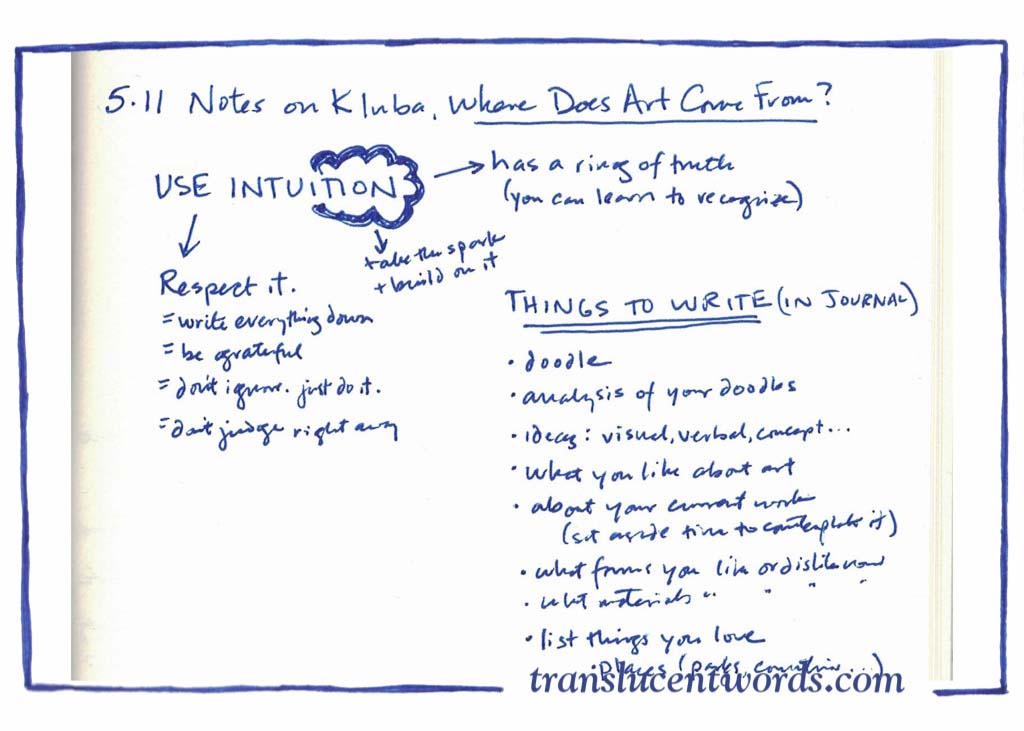 5.11 Notes on Kluba, Where Does Art Come From?
USE INTUITION
→ has a ring of truth
(you can learn to recognize)
take the spark
+ build on it
Respect it.
= write everything down
= be grateful
= don't ignore. just do it.
= don't judge right away
THINGS TO WRITE (IN JOURNAL)
• doodle
• analysis of your doodles
• ideas: visual, verbal, concept...
• what you like about art
• about your current work
(set aside time to contemplate it)
• what forms you like or dislike now
• what materials " " " "
• list things you love
places (parks, countries...)
translucentwords.com